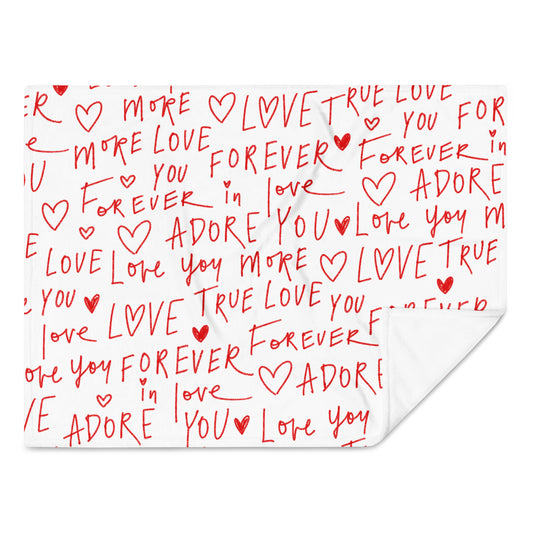 ER MORE LOVE TRUE LOVE
MORE LOVE YOU FOREVER YOU FOR
FOREVER in love FOREVER in
ADORE YOU Love you M
LOVE Love you MORE LOVE TRUE
YOU LOVE TRUE LOVE YOU FOREVER
love FOREVER FOREVER
ove you in love ADORE
VE ADORE YOU Love you